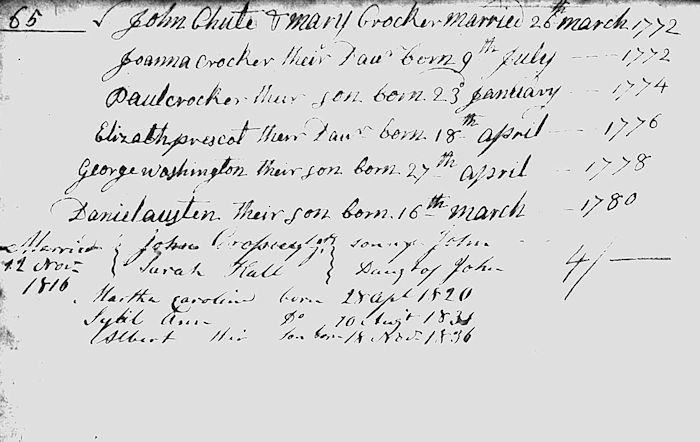 65 ✓ John Chute & mary Crocker married 26th march 1772
Joanna crocker their Daur born 9th July 1772
Paul crocker their son born 23d January 1774
Elizath prescot their Daur born 18th april 1776
George washington their son born 27th april 1778
Daniel austen their son born 16th march 1780
Married { John { son of John
12 Novr { Sarah Hall { Daugt of John 4/
1816
Martha caroline born 28 apl 1820
Sybil Ann Do 10 Augt
Albert son born 18 Novr 1836